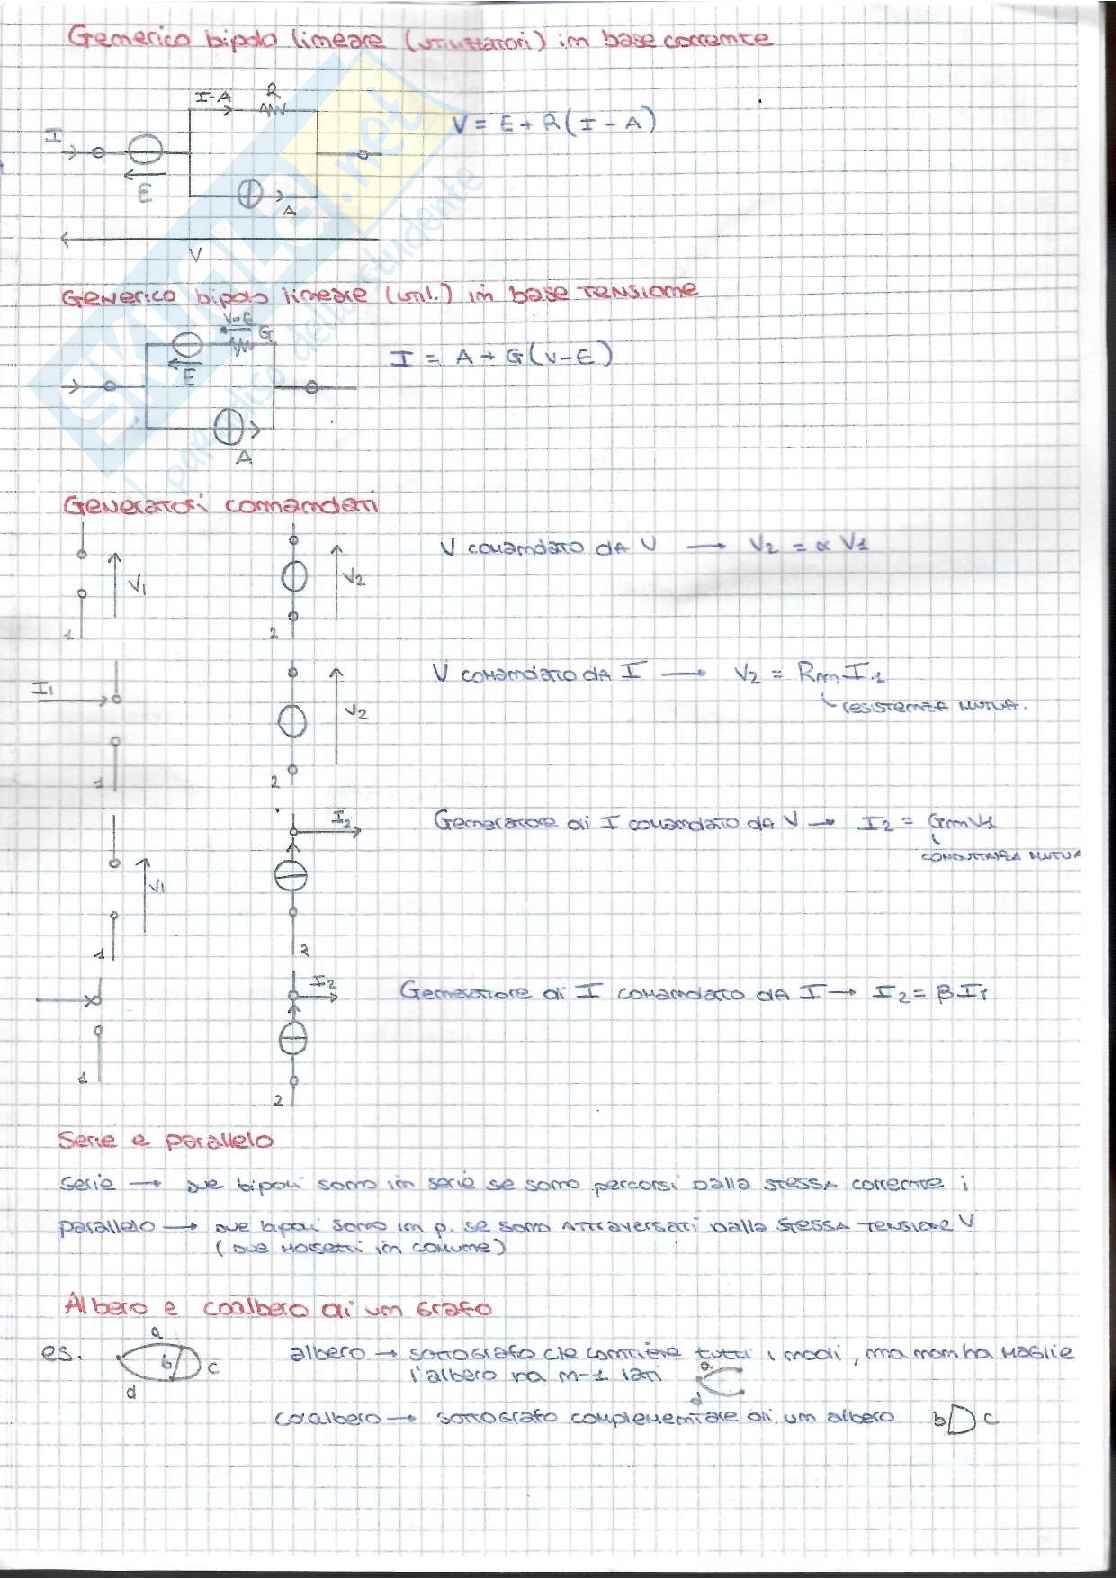 Generico bipolo lineare (utilizzatori) in base corrente
I-A R
I
V = E + R(I - A)
E
A
V
Generico bipolo lineare (util.) in base tensione
V-E
G
I = A + G(V-E)
E
A
Generatori comandati
V comandato da V → V2 = α V1
V1
V2
1
2
V comandato da I → V2 = Rm I1
I1
V2
resistenza mutua.
1
2
I2
Generatore di I comandato da V → I2 = Gm V1
conduttanza mutua
V1
1
2
I2
Generatore di I comandato da I → I2 = β I1
1
2
Serie e parallelo
serie → due bipoli sono in serie se sono percorsi dalla stessa corrente i
parallelo → due bipoli sono in p. se sono attraversati dalla stessa tensione V
(due morsetti in comune)
Albero e coalbero di un grafo
es.
a
b
c
d
albero → sottografo che contiene tutti i nodi, ma non ha maglie
l'albero ha n-1 lati
a
d
coalbero → sottografo complementare di un albero b c
SKUOLA.net
dello studente